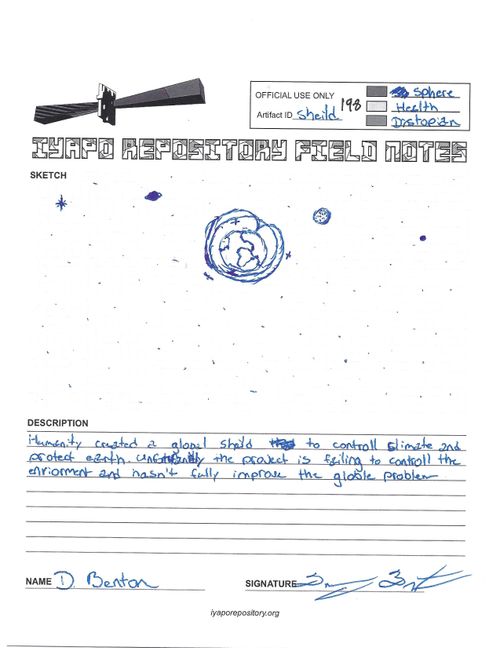 OFFICIAL USE ONLY
Sphere
198
Health
Artifact ID Sheild
Distopian
IYAPO REPOSITORY FIELD NOTES
SKETCH
DESCRIPTION
Humanity created a glopal sheild to controll climate and
protect earth. the project is failing to controll the
enviorment and hasn't fully improve the globle problem
NAME D. Benton
SIGNATURE
iyaporepository.org